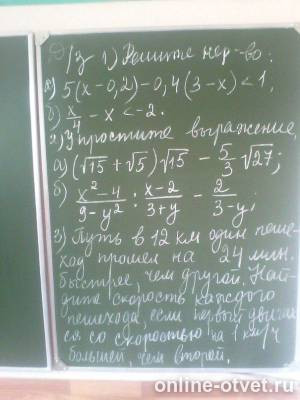 Д/з 1) Решите нер-во:
а) 5(x-0,2)-0,4(3-x)<1,
б) x/4 - x < -2.
2) Упростите выражение
а) (√15 + √5)√15 - 5/3 √27;
б) (x²-4)/(9-y²) : (x-2)/(3+y) - 2/(3-y);
3) Путь в 12 км один пеше-
ход прошел на 24 мин.
быстрее, чем другой. Най-
дите скорость каждого
пешехода, если первый двигал
ся со скоростью на 1 км/ч
большей, чем второй.
online-otvet.ru